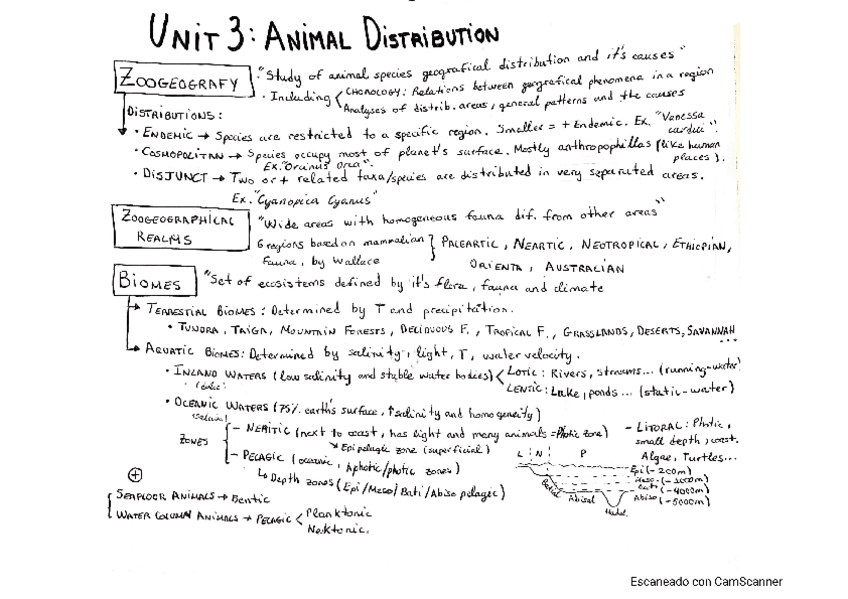 UNIT 3: ANIMAL DISTRIBUTION
ZOOGEOGRAFY
"Study of animal species geografical distribution and it's causes"
· Including < CHONOLOGY: Relations between geografical phenomena in a region
Analyses of distrib. areas, general patterns and the causes
DISTRIBUTIONS:
· ENDEMIC → Species are restricted to a specific region. Smaller = + Endemic. Ex. "Vanessa cardui".
· COSMOPOLITAN → Species occupy most of planet's surface. Mostly anthropophillas (like human places).
Ex. "Orcinus Orca".
· DISJUNCT → Two or + related taxa/species are distributed in very separated areas.
Ex. "Cyanopica Cyanus"
ZOOGEOGRAPHICAL REALMS
"Wide areas with homogeneous fauna dif. from other areas"
6 regions based on mammalian fauna, by Wallace } PALEARTIC, NEARTIC, NEOTROPICAL, ETHIOPIAN,
ORIENTA, AUSTRALIAN
BIOMES
"Set of ecosistems defined by it's flora, fauna and climate
→ TERRESTIAL BIOMES: Determined by T and precipitation.
· TUNDRA, TAIGA, MOUNTAIN FORESTS, DECIDUOUS F., TROPICAL F., GRASSLANDS, DESERTS, SAVANNAH
...
→ AQUATIC BIOMES: Determined by salinity, light, T, water velocity.
· INLAND WATERS (low salinity and stable water bodies) < LOTIC: Rivers, streams... (running-water)
LENTIC: Lake, ponds... (static-water)
· OCEANIC WATERS (75% earth's surface, ↑salinity and homogeneity)
ZONES
- NERITIC (next to coast, has light and many animals = Photic zone)
↘ Epipelagic zone (superficial)
- PELAGIC (oceanic, Aphotic/photic zones)
↳ Depth zones (Epi/Meso/Bati/Abiso pelagic)
- LITORAL: Photic, small depth, coast.
Algae, Turtles...
L N P
Epi (-200m)
Meso (-1000m)
Bati (-4000m)
Abiso (-5000m)
Batial Abisal Hadal
⊕
SEAFLOOR ANIMALS → Bentic
WATER COLUMN ANIMALS → PELAGIC < Planktonic
Nektonic.
Escaneado con CamScanner